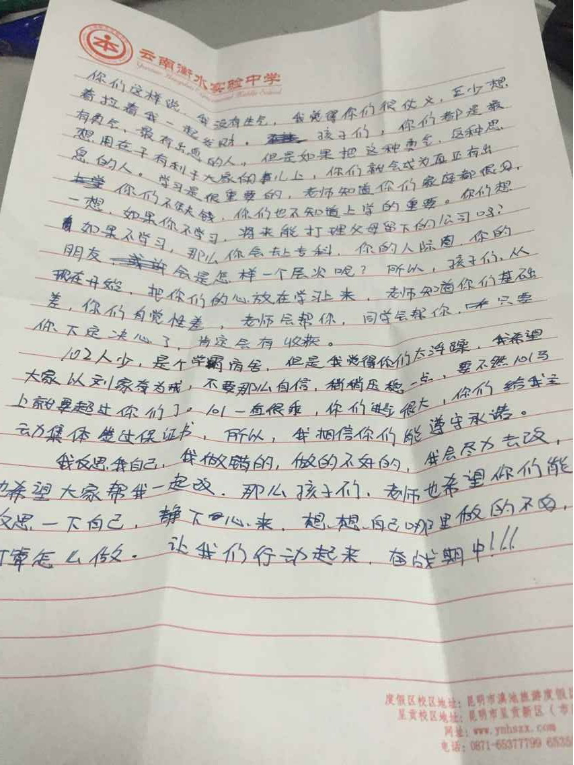 云南衡水实验中学
你们这样晚,我没有生气,我觉得你们很仗义,至少想
着拉着我一起发财。孩子们,你们都是最
有勇气、最有出息的人,但是如果把这种勇气、这种思
想用在于有利于大家的事儿上,你们就会成为真正有出
息的人。学习是很重要的,老师知道你们家庭都很好,
你们不缺钱,你们也不知道上学的重要。你们想
一想,如果你不学习,将来能打理父母留下的公司吗?
如果不学习,那么你会去上专科,你的人际圈,你的
朋友会是怎样一个层次呢?所以,孩子们,从
现在开始,把你们的心放在学习上来,老师知道你们基础
差,你们自觉性差,老师会帮你,同学会帮你,只要
你下定决心了,肯定会有收获。
102人少,是个学霸宿舍,但是我觉得你们太浮躁,我希望
大家以刘家存为戒,不要那么自信,稍稍压稳一点,要不然101马
上就要超过你们了。101一直很乖,你们进步很大,你们给我主
动集体递过保证书,所以,我相信你们能遵守承诺。
我反思我自己,我做错的,做的不好的,我会尽力去改,
也希望大家帮我一起改。那么孩子们,老师也希望你们能
反思一下自己,静下心来,想想自己哪里做的不好,
打算怎么做。让我们行动起来,奋战期中!!!
度假区校区地址:昆明市滇池旅游度假区
呈贡校区地址:昆明市呈贡新区(市
网址:www.ynhszx.com
电话:0871-65377799 6535